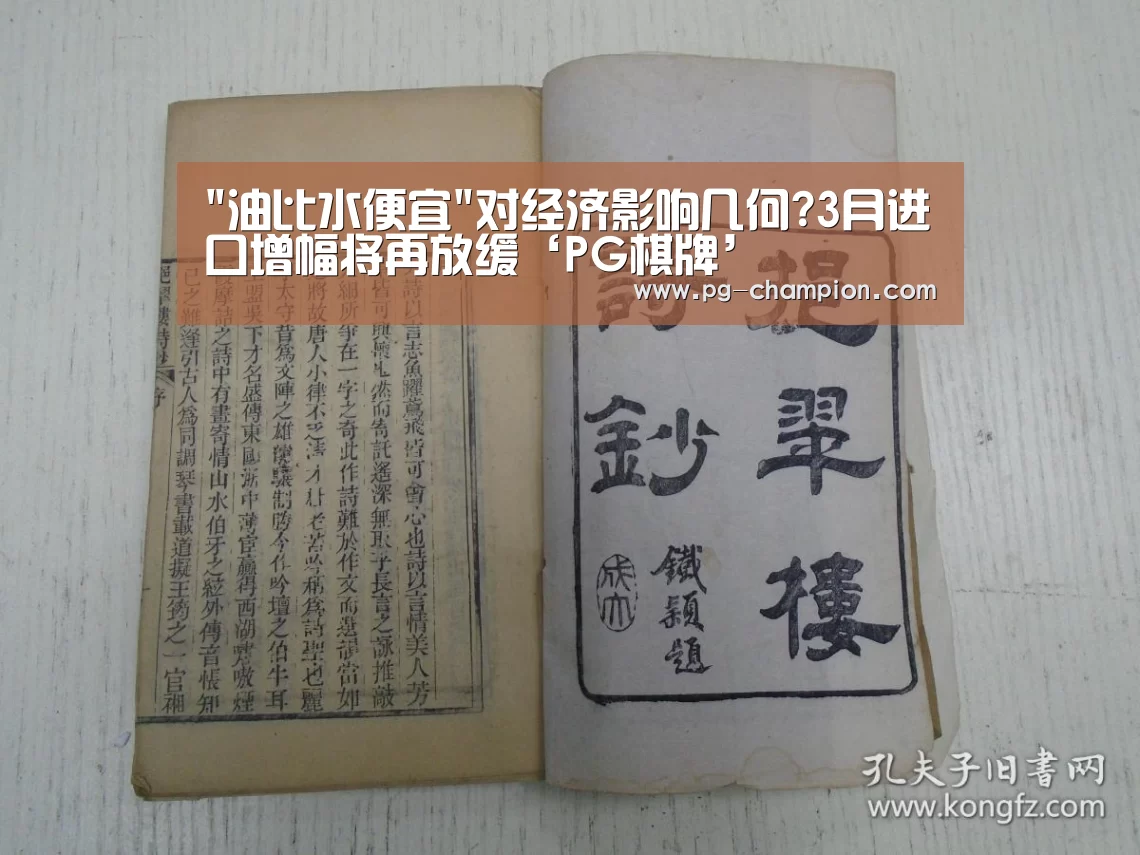 "油比水便宜"对经济影响几何?3月进
口增幅将再放缓‘PG棋牌’
www.pg-champion.com
挹翠樓
詩鈔
鐵潁題
詩以言志魚躍鳶飛皆可會心也詩以言情美人芳
皆可興懷也然而寄託遙深無取乎長言之詠推敲
所爭在一字之奇此作詩難於作文而選詩當如
將故唐人小律不乏清才杜老苦吟稱爲詩聖也麗
太守昔爲文陣之雄制勝今作吟壇之伯牛耳
盟吳下才名盛傳東甌浙中薄官贏得西湖嘯嗷煙
摩詰之詩中有畫寄情山水伯牙之絃外傳音悵知
己之難逢引古人爲同調琴書載道擬王筠之一官湘
挹翠樓詩鈔 序
孔夫子旧书网
www.kongfz.com